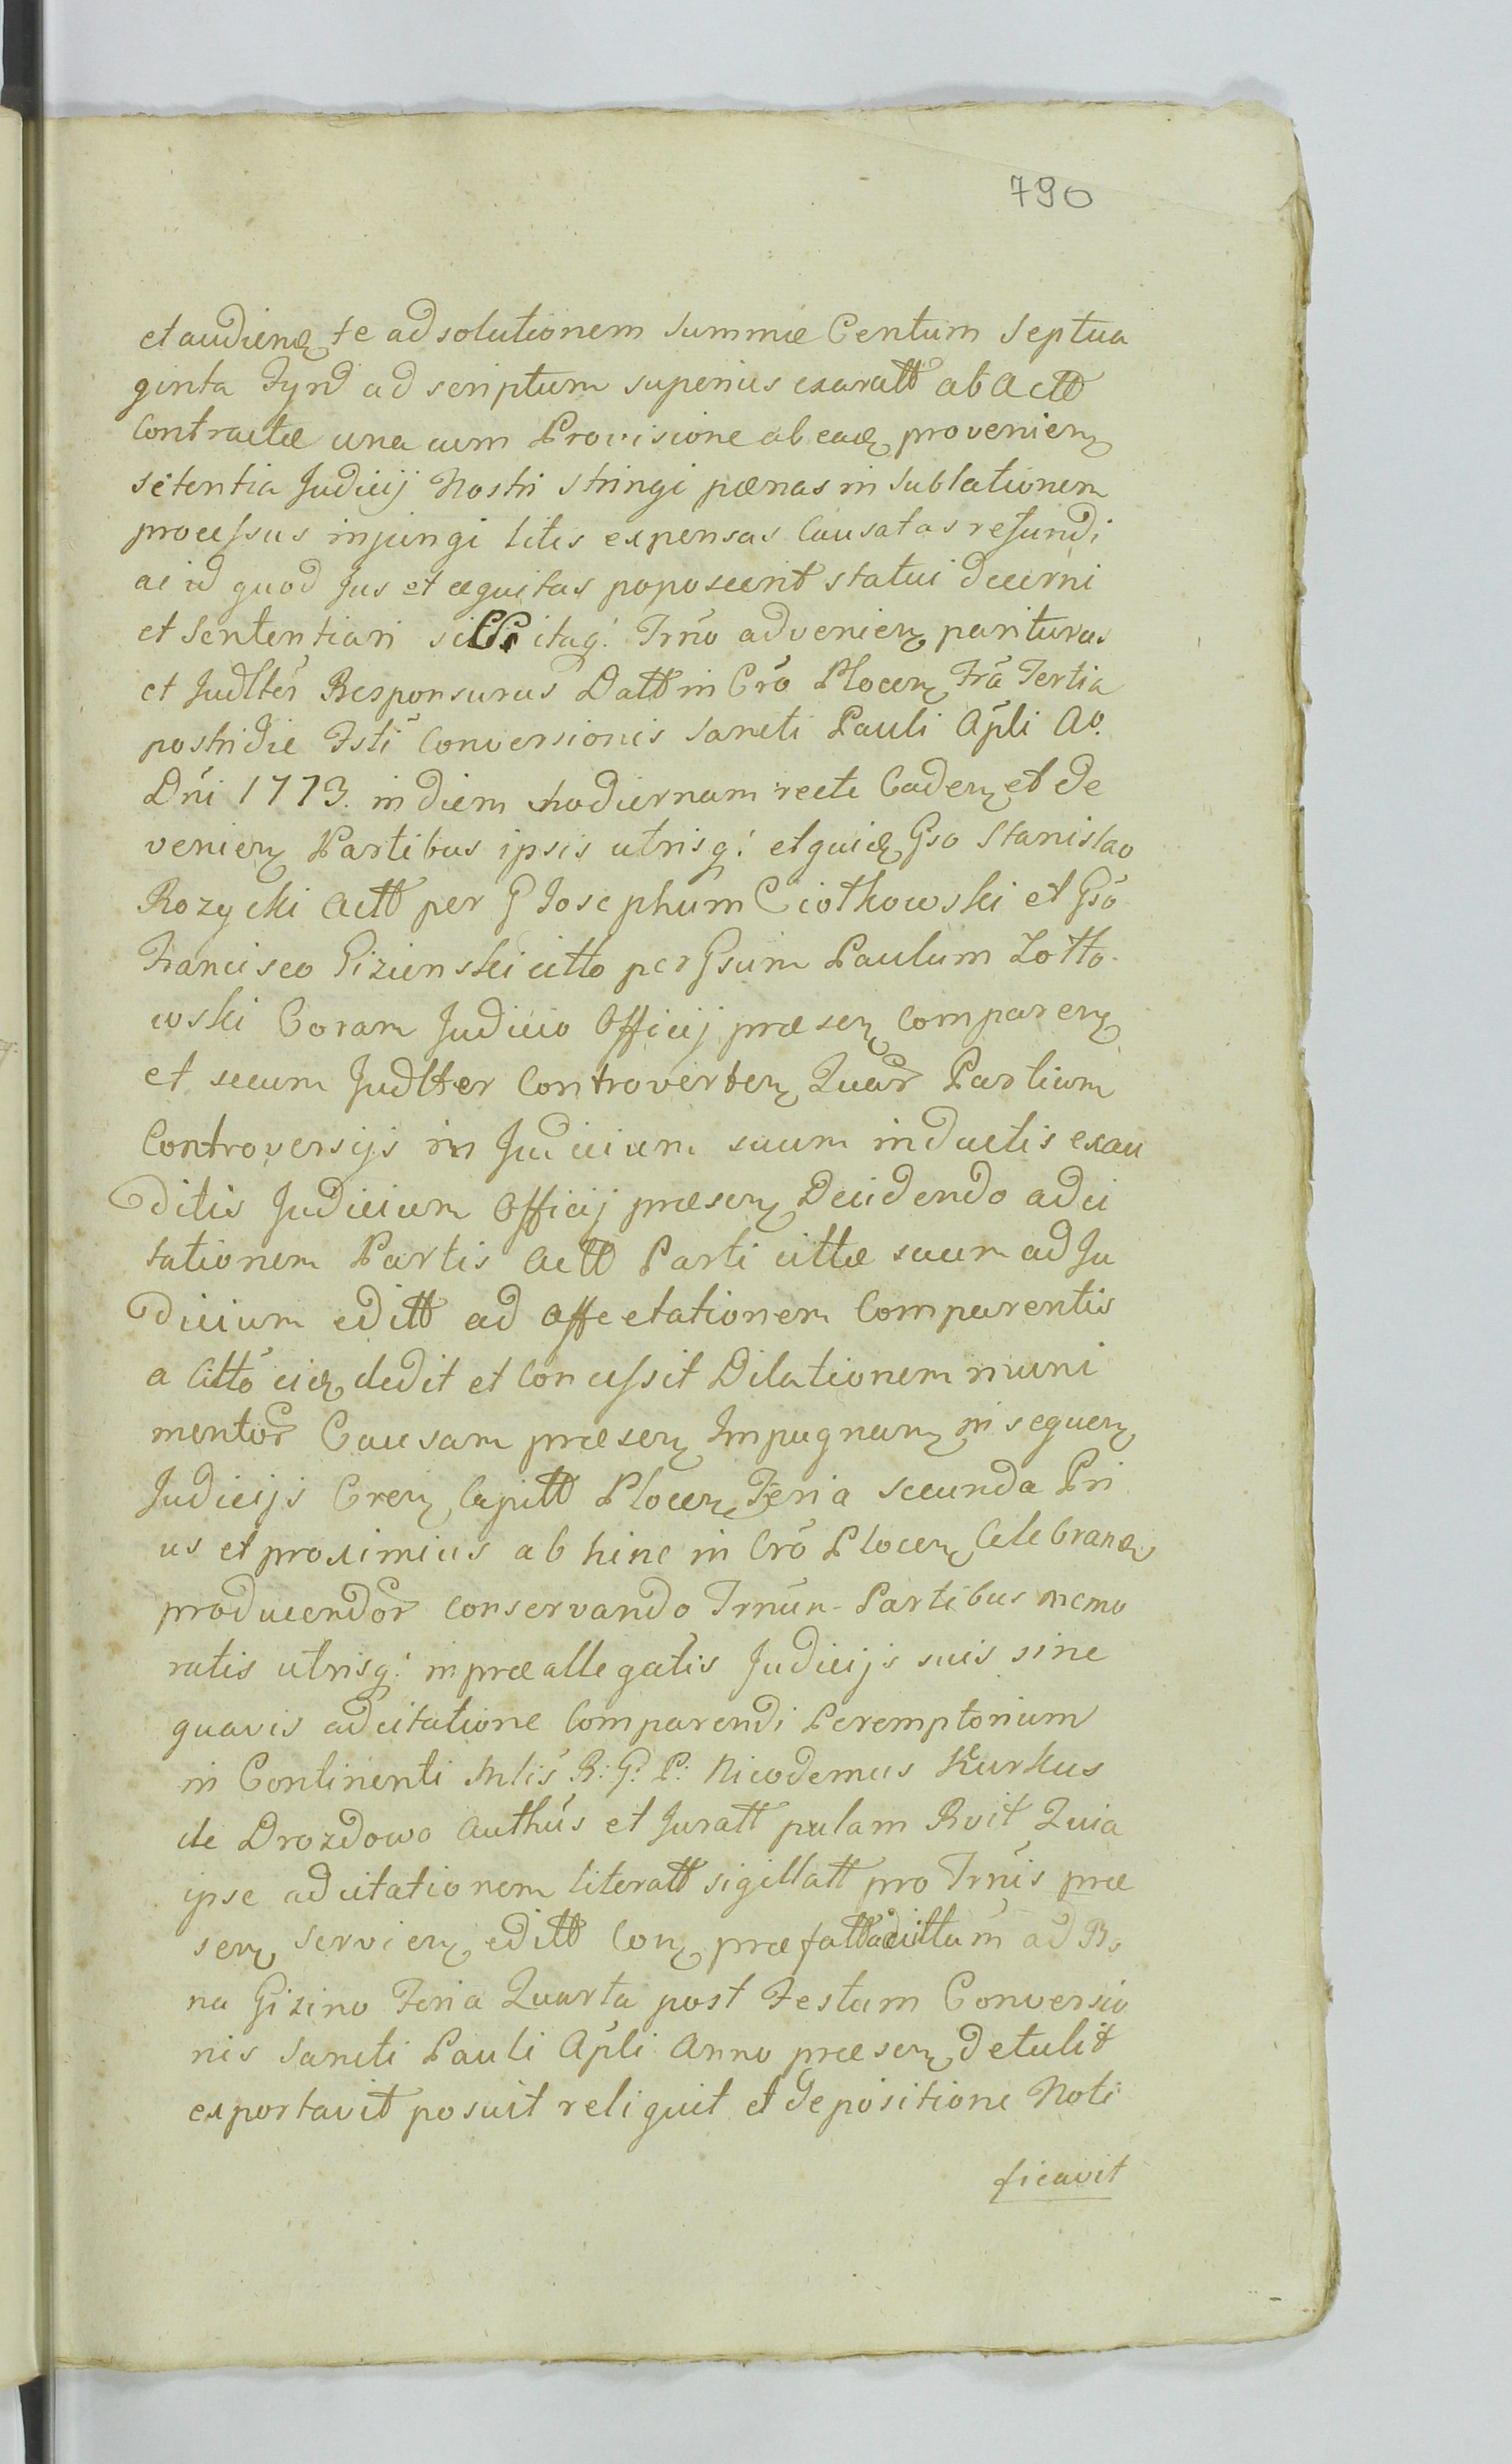 790
et audiend te ad solutionem Summæ Centum Septua
ginta Tynf ad scriptum superius exaratt ab Actt
Contractæ una cum Provisione ab eadę provenienę
sētentia Judicij Nostri stringi pœnas in Sublationem
processus injungi litis expensas Causatas refundi
ac id quod Jus et æquitas poposcerit statui decerni
et Sententiari itaq: Trño advenienę pariturus
et Judltēr Responsurus Datt in Crō Plocenę Frā Tertia
postridie Fsti Conversionis Sancti Pauli Apli Ao.
Dni 1773. in diem hodiernam recte Cadenę et de
venienę Partibus ipsis utrisq: et quidę Gso Stanislao
Rozycki Actt per G Josephum Ciołkowski et Gsō
Francisco Gizinski citto per Gsum Paulum Zołto-
wski Coram Judicio Officij præsenę Comparenę
et secum Judlter Controvertenę Quar̄ Partium
Controversijs in Judicium suum inductis exau
ditis Judicium Officij præsenę Decidendo ad ci
tationem Partis Actt Parti cittæ suum ad Ju
dicium editt ad affectationem Comparentis
a Citto eidę dedit et Concessit Dilationem muni
mentor̄ Causam præsenę Impugnanę in sequenę
Judicijs Crenę Capitt Plocenę Feria secunda Pri
us et proximius ab hinc in Crō Plocenę Celebrandę
producendor̄ conservando Trnūn- Partibus memo
ratis utrisq: in præallegatis Judicijs suis sine
quavis adcitatione Comparendi Peremptorium
in Continenti Mlis R: G: P: Nicodemus Kurkus
de Drozdowo Authūs et Juratt palam Rvit Quia
ipse adcitationem literatt sigillatt pro Trnīs præ
senę servienę editt Conę præfatt citium ad B
na Gizino Feria Quarta post Festum Conversio
nis Sancti Pauli Apli Anno præsenę detulit
exportavit posuit reliquit et de positione Noti
ficavit